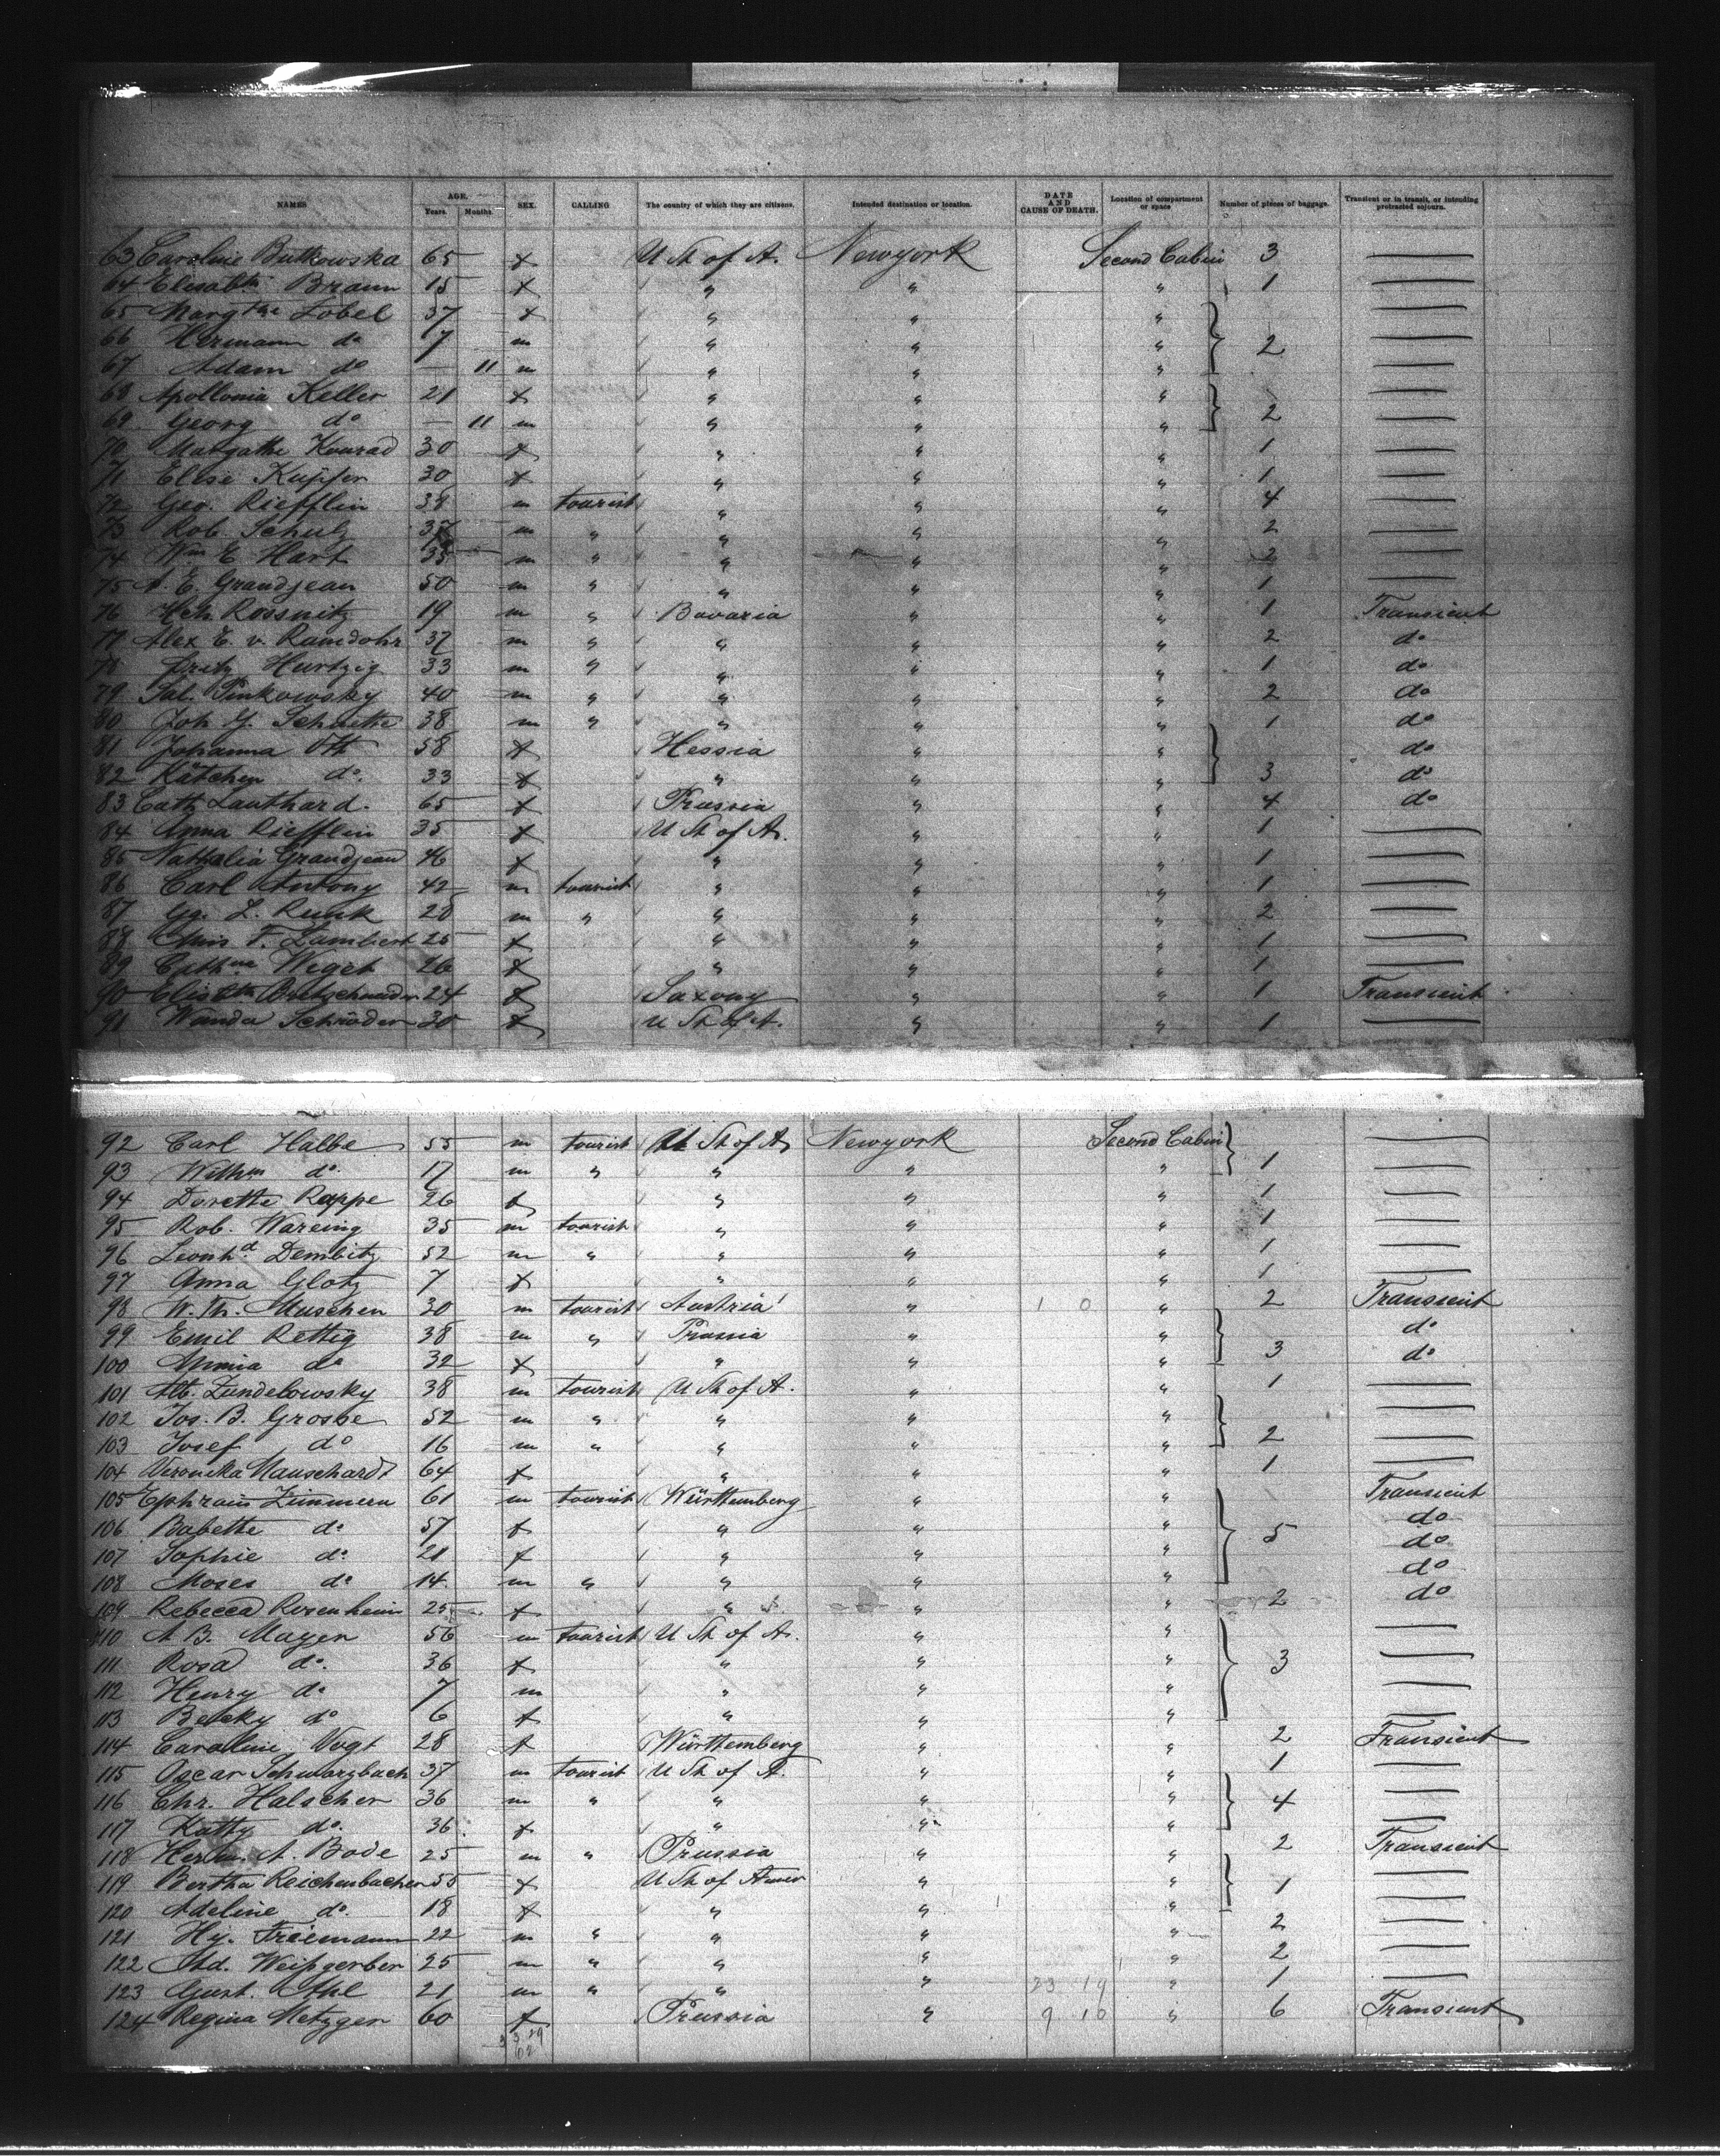 NAMES AGE. Years. Months. SEX. CALLING The country of which they are citizens. Intended destination or location. DATE AND CAUSE OF DEATH. Location of compartment or space Number of pieces of baggage. Transient or in transit, or intending protracted sojourn.
63 Caroline Butkowska 65 f U St of A. Newyork Second Cabin 3 —
64 Elisabth Braun 15 f " " " 1 —
65 Margthe Zobel 37 f " " " —
66 Hermann do 7 m " " " 2 —
67 Adam do — 11 m " " " —
68 Apollonia Keller 21 f " " " —
69 Georg do — 11 m " " " 2 —
70 Margathe Konrad 30 f " " " 1 —
71 Elise Kupfer 30 f " " " 1 —
72 Geo. Riefflin 38 m tourist " " " 4 —
73 Rob. Schulz 37 m " " " " 2 —
74 Wm E Hart 35 m " " " " 2 —
75 A. E. Grandjean 50 m " " " " 1 —
76 Hch. Rossnitz 19 m " Bavaria " " 1 Transient
77 Alex E. v. Ramdohr 37 m " " " " 2 do
78 Fritz Hurtzig 33 m " " " " 1 do
79 Sal. Pinkowsky 40 m " " " " 2 do
80 Joh. G. Schaette 38 m " " " " 1 do
81 Johanna Ott 58 f Hessia " " do
82 Kätchen do. 33 f " " " 3 do
83 Cath Lauthard. 65 f Prussia " " 4 do
84 Anna Riefflin 35 f U St of A. " " 1 —
85 Nathalia Grandjean 46 f " " " 1 —
86 Carl Antony 42 m tourist " " " 1 —
87 Gg. L. Runk 28 m " " " " 2 —
88 Chris F. Lambert 25 f " " " 1 —
89 Cathne Weget 26 f " " " 1 —
90 Elisbth Bretschneider 24 f Saxony " " 1 Transient
91 Wanda Schröder 30 f U St of A. " " 1 —
92 Carl Halbe 55 m tourist U St of A Newyork Second Cabin —
93 Wilhm do. 17 m " " " " 1 —
94 Dorette Rappe 26 f " " " 1 —
95 Rob. Wareing 35 m tourist " " " 1 —
96 Leonhd Dembitz 52 m " " " " 1 —
97 Anna Glotz 7 f " " " 1 —
98 W. Th. Muschen 30 m tourist Austria " 1 0 " 2 Transient
99 Emil Rettig 38 m " Prussia " " do
100 Minnia do 32 f " " " 3 do
101 Alb. Zundelowsky 38 m tourist U St of A. " " 1 —
102 Jos. B. Grosbe 52 m " " " " —
103 Josef do 16 m " " " " 2 —
104 Veronika Mauschardt 64 f " " " 1 —
105 Ephraim Zimmern 61 m tourist Württemberg " " Transient
106 Babette do 57 f " " " 5 do
107 Sophie do. 21 f " " " do
108 Moses do 14. m " " " " do
109 Rebecca Rosenheim 25 f " " " 2 do
110 A B. Mayer 56 m tourist U St of A. " " —
111 Rosa do. 36 f " " " 3 —
112 Henry do 7 m " " " —
113 Becky do 6 f " " " —
114 Caroline Vogt 28 f Württemberg " " 2 Transient
115 Oscar Schwarzbach 37 m tourist U St of A. " " 1 —
116 Chr. Halscher 36 m " " " " 4 —
117 Katty do. 36 f " " " —
118 Herm. A. Bode 25 m " Prussia " " 2 Transient
119 Bertha Reichenbacher 55 f U St of Amer " " 1 —
120 Adeline do. 18 f " " " —
121 Hy. Friemann 22 m " " " " 2 —
122 Ad. Weißgerber 25 m " " " " 2 —
123 Gust. Ahl 21 m " " " 23 19 " 1 —
124 Regina Metzger 60 f Prussia " 9 10 " 6 Transient